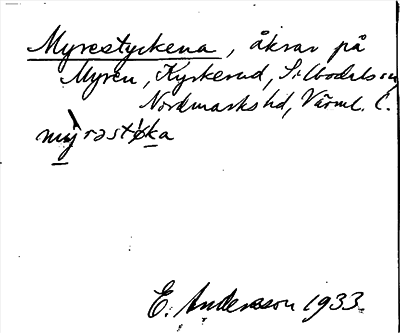 Myrestyckena, åkrar på
Myren, Kyrkerud, Silbodals sn
Nordmarks hd, Värml. l.
myrəstøka
E. Andersson 1933.